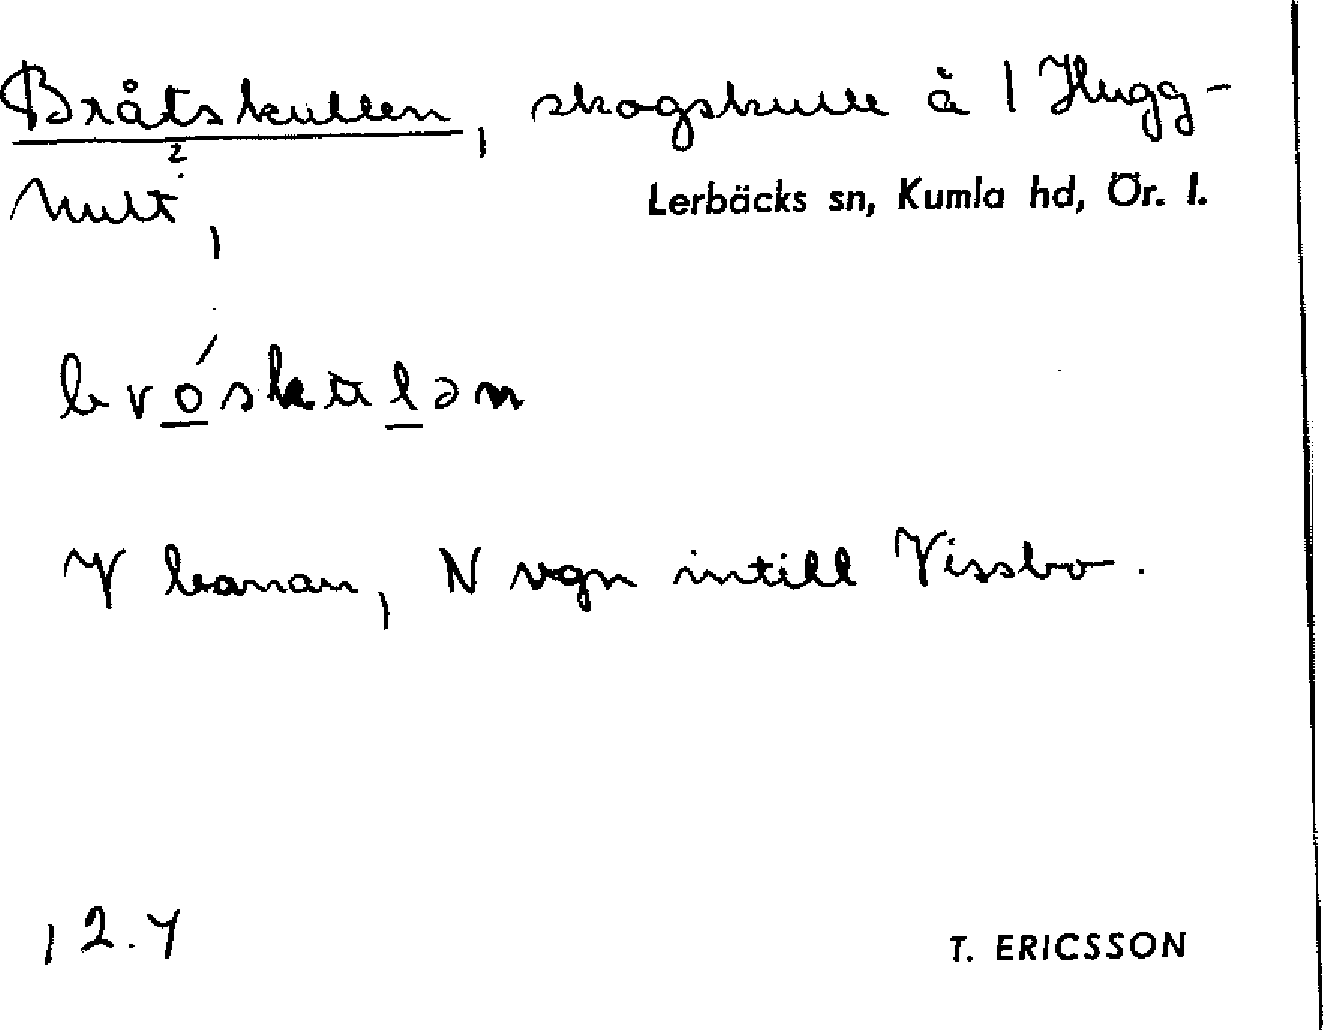 Bråtskullen, skogskulle å 1 Hugg-
hult²,
Lerbäcks sn, Kumla hd, Ör. l.
V banan, N vgn intill Vissbo.
12.7
T. ERICSSON